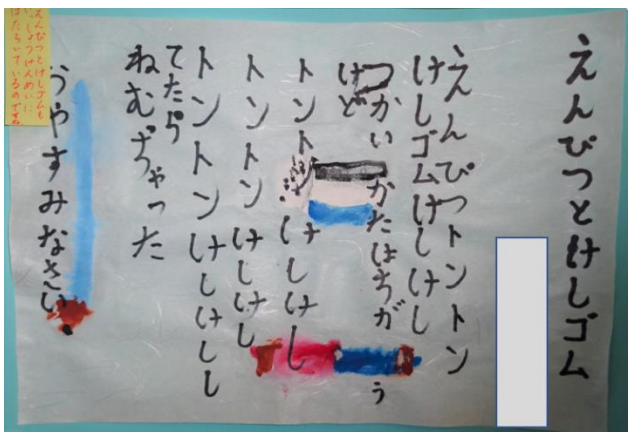 えんぴつとけしゴム
えんぴつトントン
けしゴムけしけし
つかいかたはちがう
けど
トントンけしけし
トントンけしけし
トントンけしけしし
てたら
ねむぢゃった
うやすみなさい。
えんぴつとけしゴムも
いっしょうけんめいに
はたらいているのですね